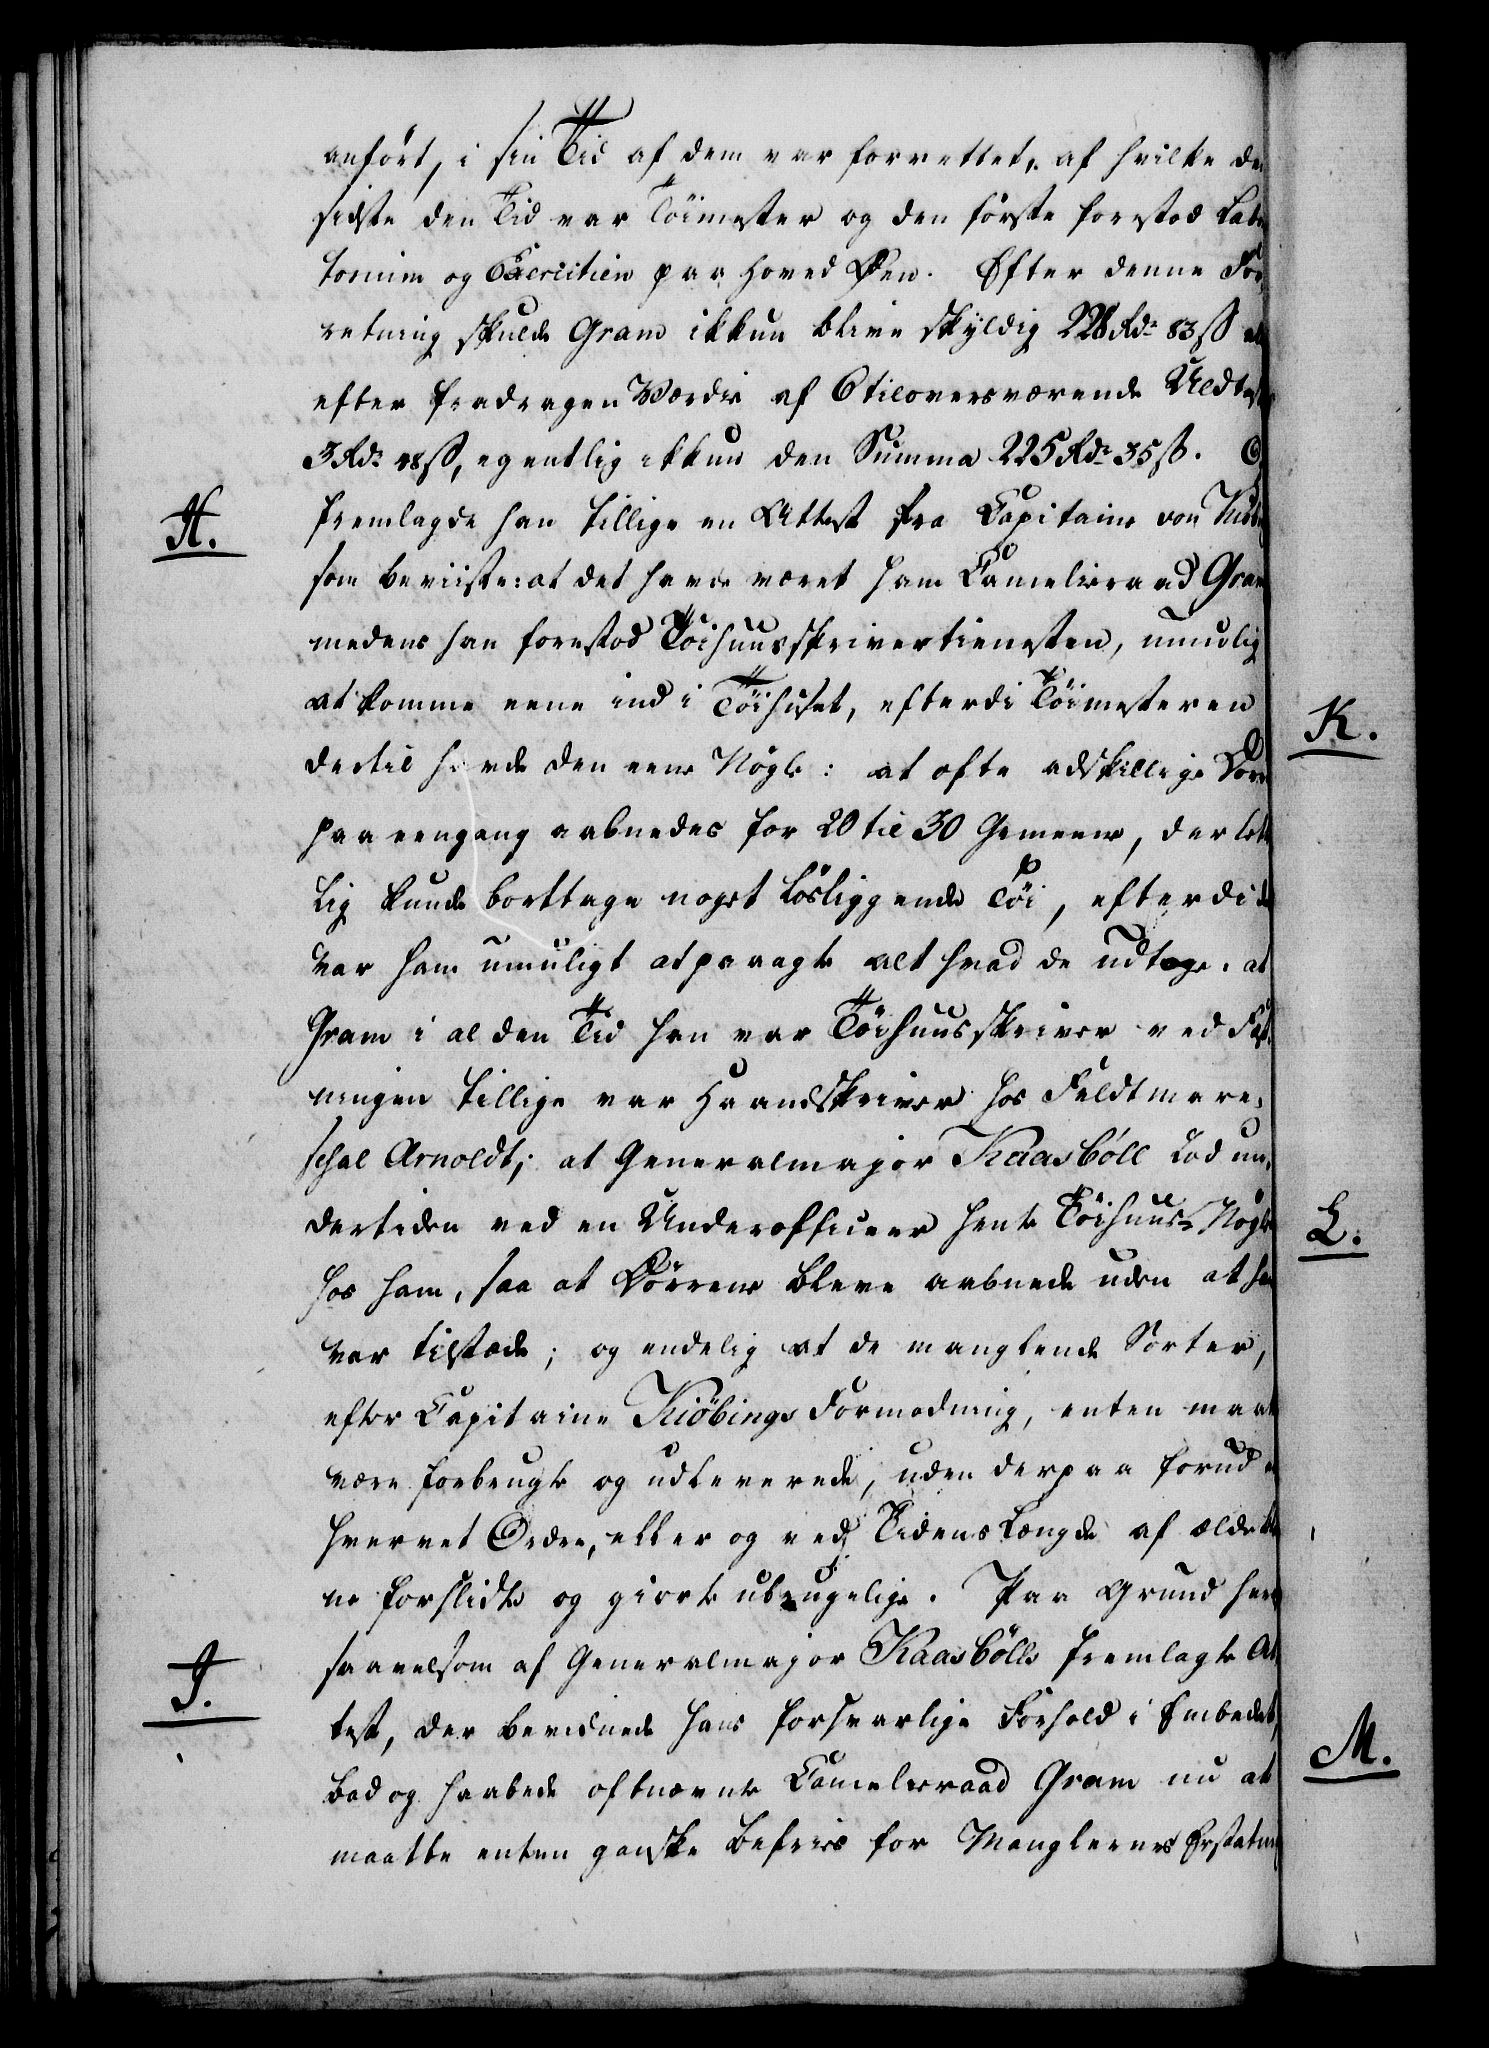 anført, i sin Tid af dem var forrettet, af hvilke de
sidste den Tid var Töimester og den første forestod Labo
torium og Exercitien paa hoved Øen. Efter denne For,
retning skulde Gram ikkun blive skyldig 228 Rdr 83 ß
efter fradragen Værdie af 6 tiloversværende Uldt
3 Rdr 48 ß, egentlig ikkun den Summa 225 Rdr 35 ß.
H.
fremlagde han tillige en Attest fra Capitaine von
som beviiste: at det havde været ham Cancelieraad Gram
medens han forestod Töihuusskrivertienesten, umulig
at komme eene ind i Töihuset, efterdi Töimesteren
dertil havde den eene Nögle: at ofte adskillige Dörre
paa eengang aabnedes for 20 til 30 Gemeene, der let
lig kunde borttage noget lösliggende Töi, efterdi de
var ham umuligt at paaagte alt hvad de udtoge. at
Gram i al den Tid han var Töihuusskriver ved Fæst
ningen tillige var Haandskriver hos Feldtmare,
schal Arnoldt; at Generalmajor Kaasböll lod un,
dertiden ved en Underofficeer hente Töihuus-Nögle
hos ham, saa at Dörrene bleve aabnede uden at han
var tilstæde; og endelig at de manglende Sorter,
efter Capitaine Kiöbings Formodning, enten maate
være forbrugte og udleverede, uden derpaa forud er
hvervet Ordre, eller og ved Tidens Længde af ælde ble
ne forslidte og giorte ubrugelige. Paa Grund her
J.
saavelsom af Generalmajor Kaasbölls fremlagte At
test, der bevidnede hans forsvarlige Forhold i Embedet,
bad og haabede oftnævnte Cancelieraad Gram nu at
maatte enten ganske befries for Manglernes Erstatning
K.
L.
M.